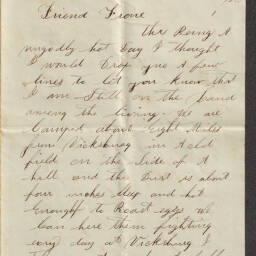 Friend Frone
this Being A
ungodly hot Day I thought
I would Drop you A few
lines to let you Know that
I am Still on the land
among the living We are
Camped about Eight Miles
from Vicksburg in A old
field on the Side of A
hill and the Dust is about
four inches deep and hot
Enought to Roast eggs We
Can here them fighting
evry day at Vicksburg I